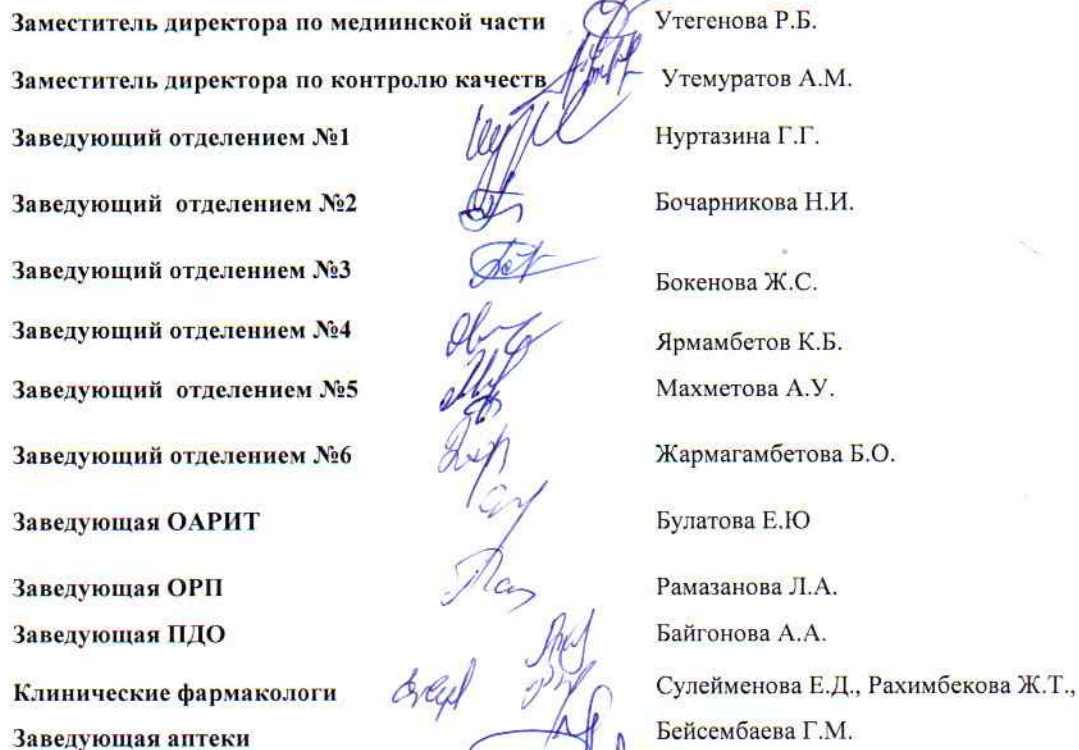 Заместитель директора по мединской части Утегенова Р.Б.
Заместитель директора по контролю качеств Утемуратов А.М.
Заведующий отделением №1 Нуртазина Г.Г.
Заведующий отделением №2 Бочарникова Н.И.
Заведующий отделением №3 Бокенова Ж.С.
Заведующий отделением №4 Ярмамбетов К.Б.
Заведующий отделением №5 Махметова А.У.
Заведующий отделением №6 Жармагамбетова Б.О.
Заведующая ОАРИТ Булатова Е.Ю
Заведующая ОРП Рамазанова Л.А.
Заведующая ПДО Байгонова А.А.
Клинические фармакологи Сулейменова Е.Д., Рахимбекова Ж.Т.,
Заведующая аптеки Бейсембаева Г.М.